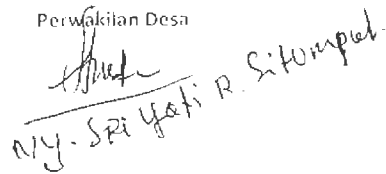 Perwakilan Desa
Ny. SRi Yati R. Sitompul.